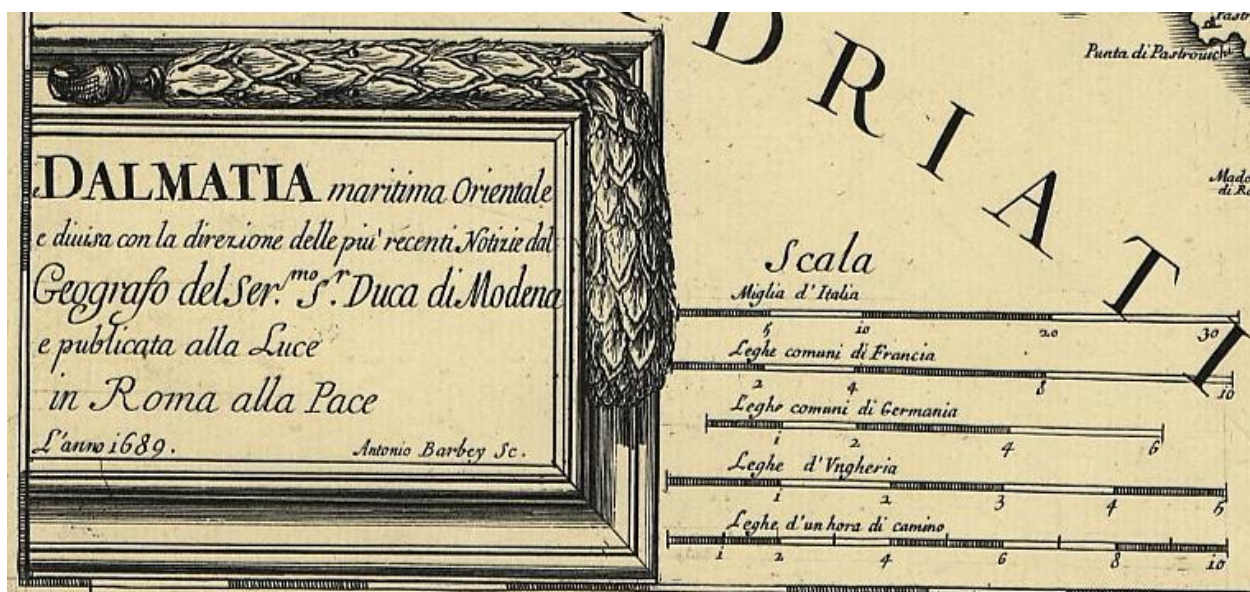 DALMATIA maritima Orientale
e diuisa con la direzione delle piu' recenti Notizie dal
Geografo del Ser.mo Sr. Duca di Modena
e publicata alla Luce
in Roma alla Pace
L'anno 1689.
Antonio Barbey Sc.
DRIATI
Punta di Pastrouichi
Scala
Miglia d'Italia
5 10 20 30
Leghe comuni di Francia
2 4 8 10
Leghe comuni di Germania
1 2 4 6
Leghe d'Vngheria
1 2 3 4 5
Leghe d'un hora di camino
1 2 4 6 8 10